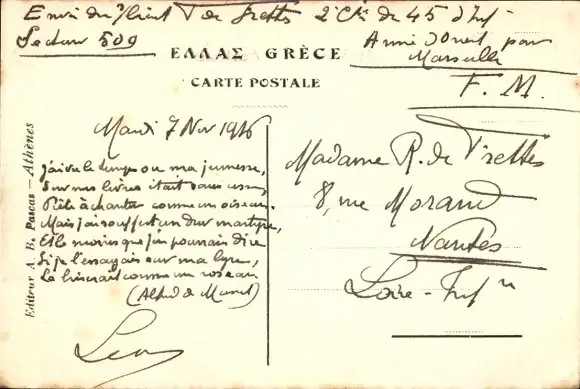 Envoi du S/Lieut T de Trettes 2e Cie de 45 d'Inf
Secteur 509
Armée d'Orient par
Marseille
F. M.
ΕΛΛΑΣ GRÈCE
CARTE POSTALE
Editeur A. B. Pascas – Athènes
Mardi 7 Nov 1916
J'ai vu le temps ou ma jeunesse,
Sur mes lèvres était sans cesse
Prête à chanter comme un oiseau.
Mais j'ai souffert un dur martyre,
Et le moins que j'en pourrais dire
Si je l'essayais sur ma lyre,
La briserait comme un roseau
(Alfred de Musset)
Léon
Madame R. de Trettes
8, rue Morand
Nantes
Loire-Infre